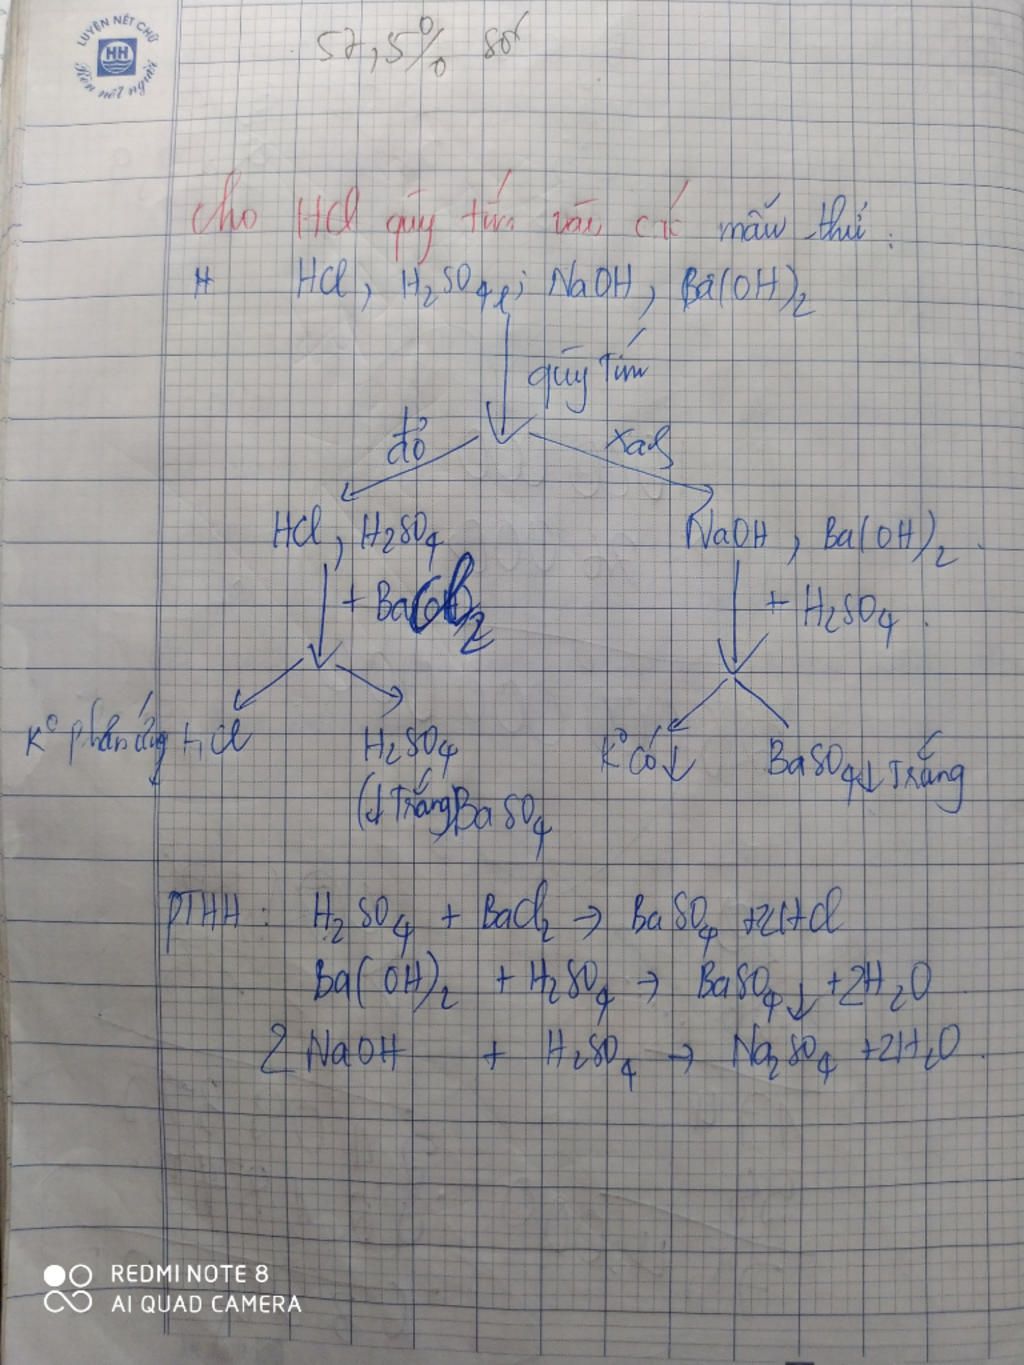 LUYỆN NÉT CHỮ
HH
Rèn nết người
57,5%
Cho HCl quỳ tím vào các mẫu thử:
HCl, H2SO4; NaOH, Ba(OH)2
quỳ tím
đỏ
xanh
HCl, H2SO4
NaOH, Ba(OH)2.
+ BaCl2
+ H2SO4.
K° phản ứng HCl
H2SO4
K° có ↓
BaSO4↓ Trắng
(↓ Trắng) BaSO4
PTHH: H2SO4 + BaCl2 → BaSO4 +2HCl
Ba(OH)2 + H2SO4 → BaSO4↓ +2H2O
2 NaOH + H2SO4 → Na2SO4 +2H2O.
REDMI NOTE 8
AI QUAD CAMERA